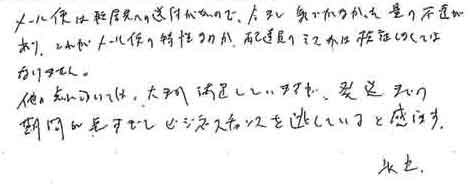 メール便は転居先への送付がないので、
あり、これがメール便の特性なのか、配達員のミスかは検証しなくては
なりません。
他の点については、大変満足していますが、発送までの
期間が長すぎてビジネスチャンスを逃していると感じます。
以上.